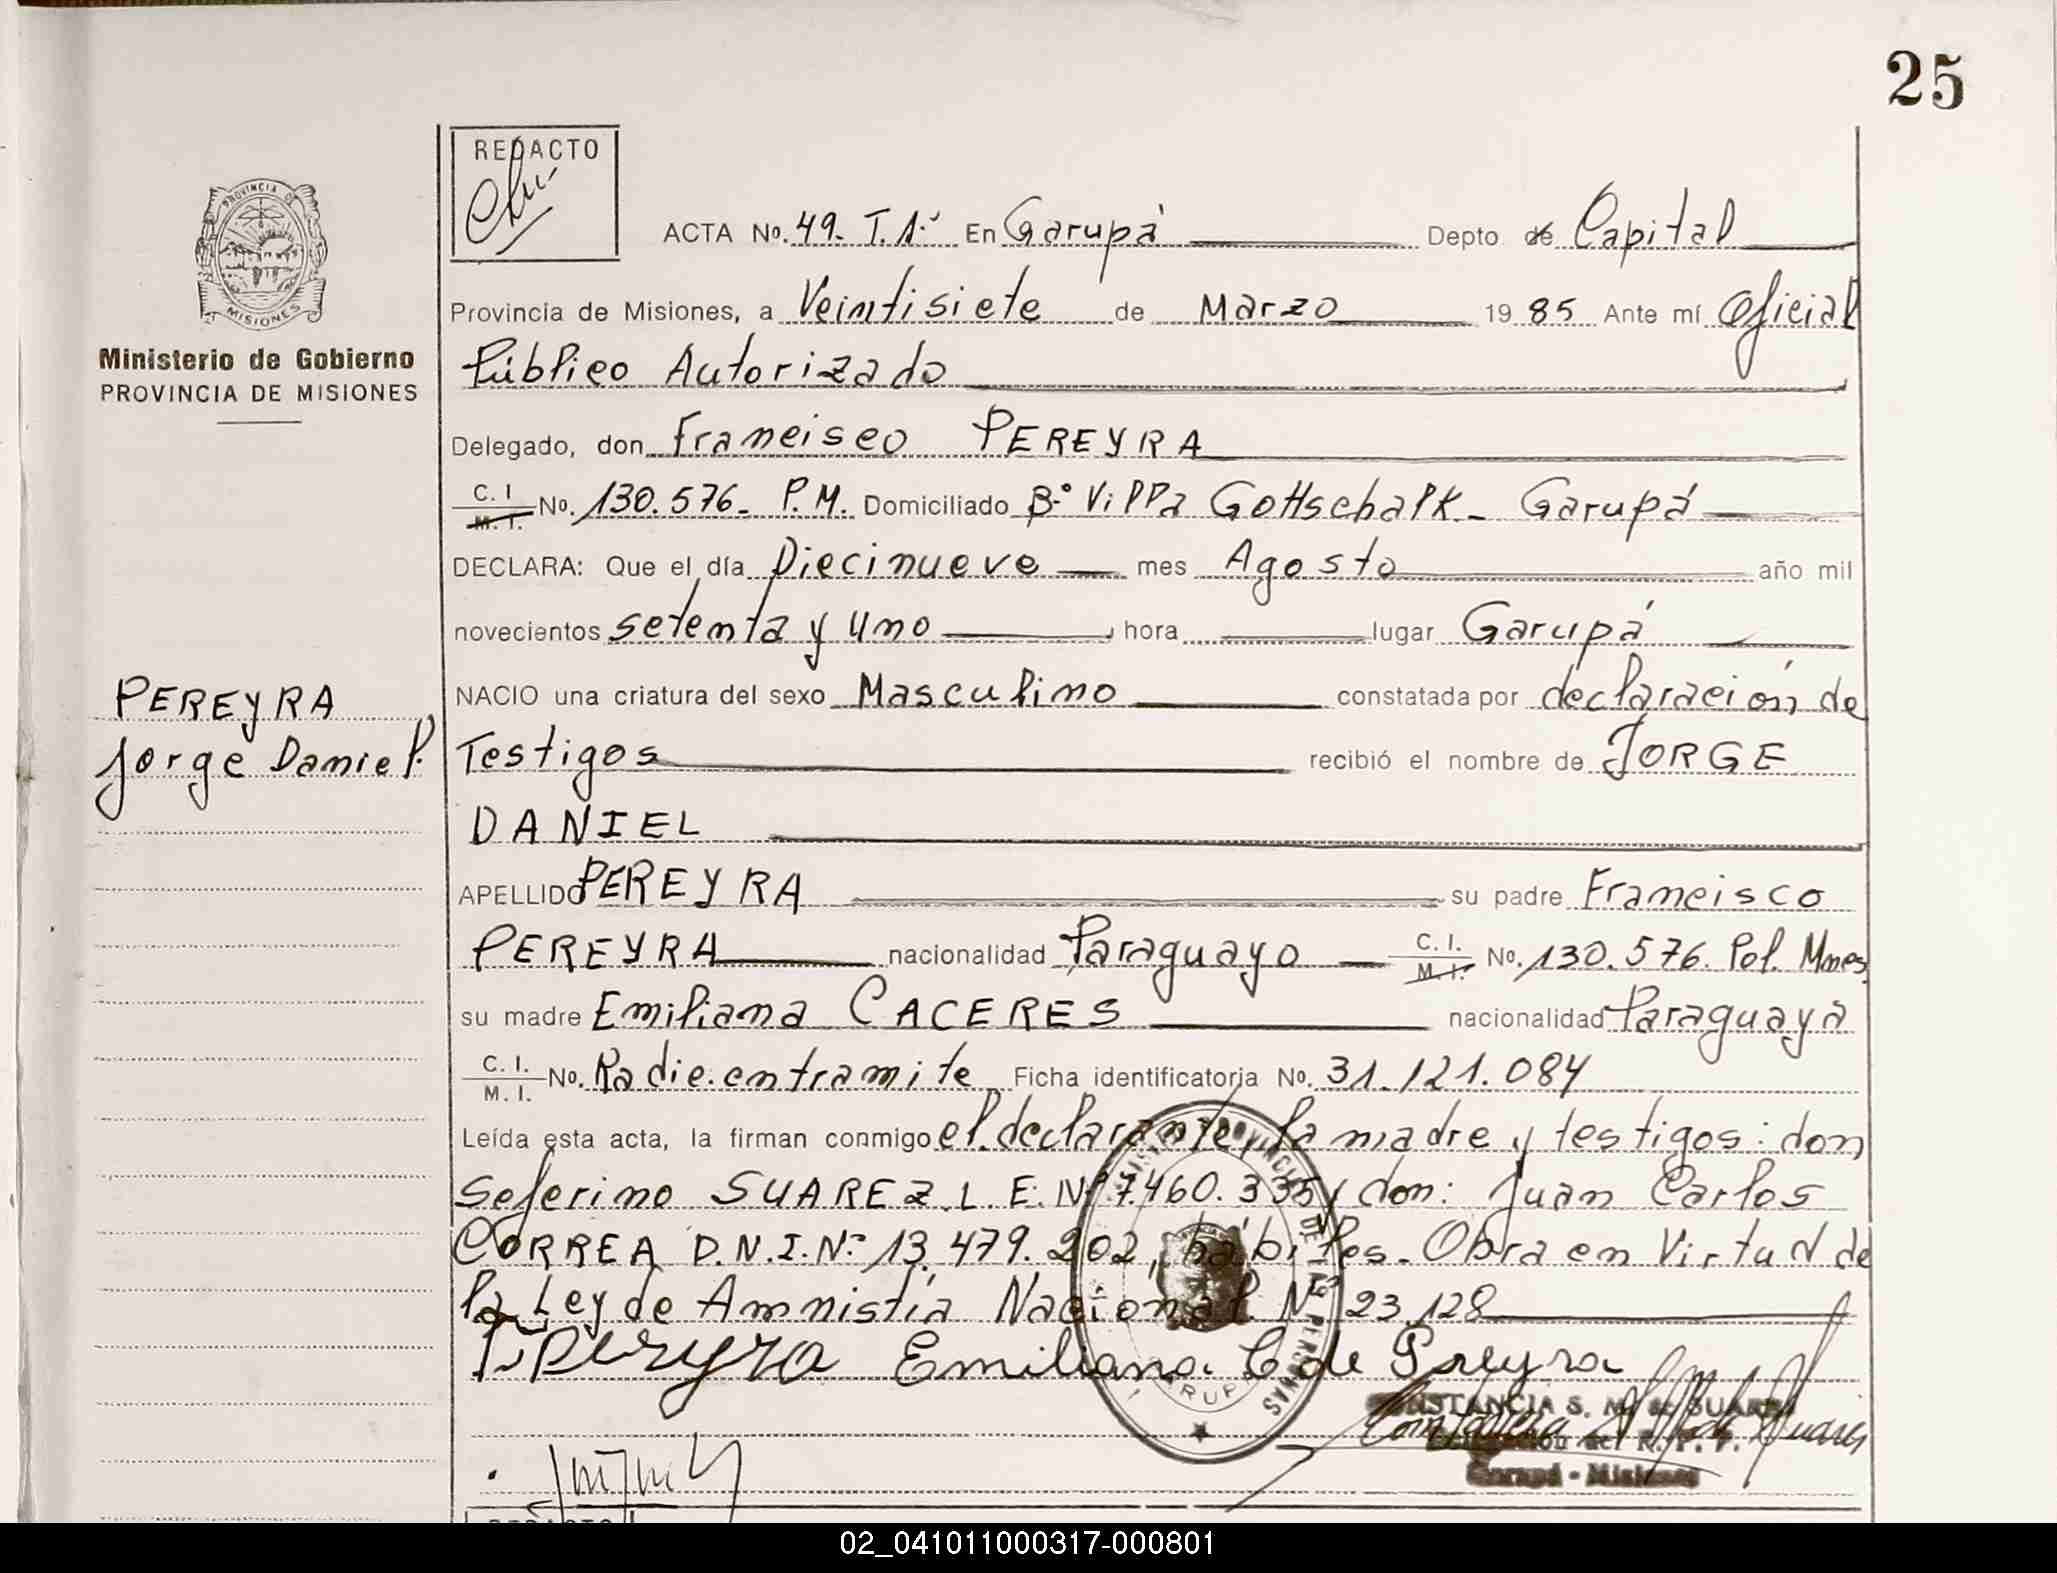 25
REDACTO
ACTA No. 49. T. 1.° En Garupá Depto de Capital
PROVINCIA DE
MISIONES
Provincia de Misiones, a Veintisiete de Marzo 1985 Ante mí Oficial
Ministerio de Gobierno
PROVINCIA DE MISIONES
Público Autorizado
Delegado, don Francisco PEREYRA
C. I. M. I. No. 130.576- P.M. Domiciliado B.° Villa Gottschalk - Garupá
DECLARA: Que el día Diecinueve mes Agosto año mil
novecientos setenta y uno, hora lugar Garupá
PEREYRA
Jorge Daniel.
NACIO una criatura del sexo Masculino constatada por declaración de
Testigos recibió el nombre de JORGE
DANIEL
APELLIDO PEREYRA su padre Francisco
PEREYRA nacionalidad Paraguayo C. I. M. I. No. 130.576. Pol. Mnes
su madre Emiliana CACERES nacionalidad Paraguaya
C. I. M. I. No. Radic. entramite Ficha identificatoria No. 31.121.084
Leída esta acta, la firman conmigo el declarante, la madre y testigos: don
Seferino SUAREZ. L. E. N° 7.460.335 y don: Juan Carlos
CORREA D.N.I. N° 13.479.202, hábiles. Obra en Virtud de
la Ley de Amnistía Nacional N° 23.128
Pereyra Emiliana C de Pereyra
CONSTANCIA S. M. de SUAREZ
Garupá - Misiones
REDACTO
02_041011000317-000801